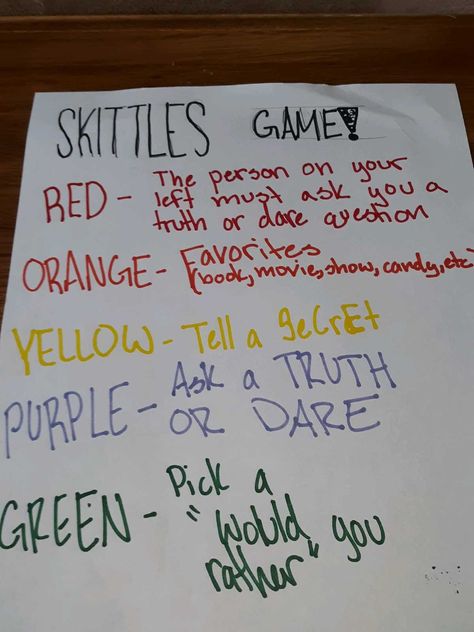 SKITTLES GAME!
RED - The person on your
left must ask you a
truth or dare question
ORANGE - Favorites
(book, movie, show, candy, etc
YELLOW - Tell a SeCrEt
PURPLE - Ask a TRUTH
OR DARE
GREEN - Pick a
"Would you
rather"